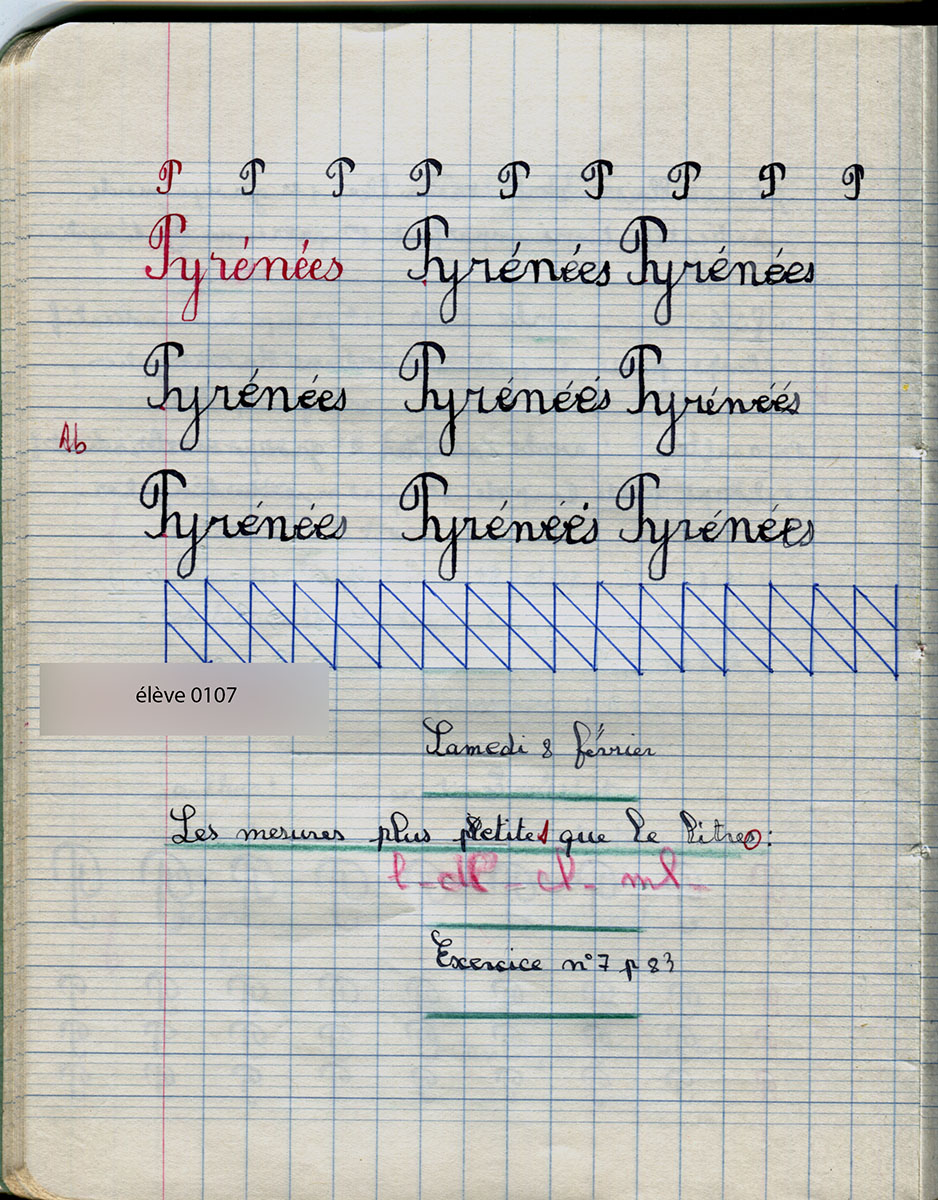 P P P P P P P P P
Pyrénées Pyrénées Pyrénées
Pyrénées Pyrénées Pyrénées
Ab
Pyrénées Pyrénées Pyrénées
élève 0107
Samedi 8 février
Les mesures plus petites que le litre :
l - dl - cl - ml -
Exercice n°7 p 83